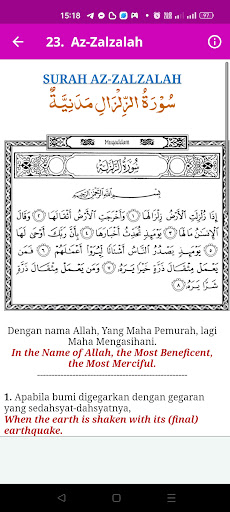 15:18
97
23. Az-Zalzalah
SURAH AZ-ZALZALAH
سُوْرَةُ الزِّلْزَالِ مَدَنِيَّةٌ
سُورَةُ الزَّلْزَلَةِ
بِسْمِ اللَّهِ الرَّحْمَٰنِ الرَّحِيمِ
إِذَا زُلْزِلَتِ الْأَرْضُ زِلْزَالَهَا ١ وَأَخْرَجَتِ الْأَرْضُ أَثْقَالَهَا ٢ وَقَالَ
الْإِنسَانُ مَا لَهَا ٣ يَوْمَئِذٍ تُحَدِّثُ أَخْبَارَهَا ٤ بِأَنَّ رَبَّكَ أَوْحَىٰ لَهَا
٥ يَوْمَئِذٍ يَصْدُرُ النَّاسُ أَشْتَاتًا لِّيُرَوْا أَعْمَالَهُمْ ٦ فَمَن
يَعْمَلْ مِثْقَالَ ذَرَّةٍ خَيْرًا يَرَهُ ٧ وَمَن يَعْمَلْ مِثْقَالَ ذَرَّةٍ
شَرًّا يَرَهُ ٨
Dengan nama Allah, Yang Maha Pemurah, lagi
Maha Mengasihani.
In the Name of Allah, the Most Beneficent,
the Most Merciful.
------------------------------------------------
1. Apabila bumi digegarkan dengan gegaran
yang sedahsyat-dahsyatnya,
When the earth is shaken with its (final)
earthquake.